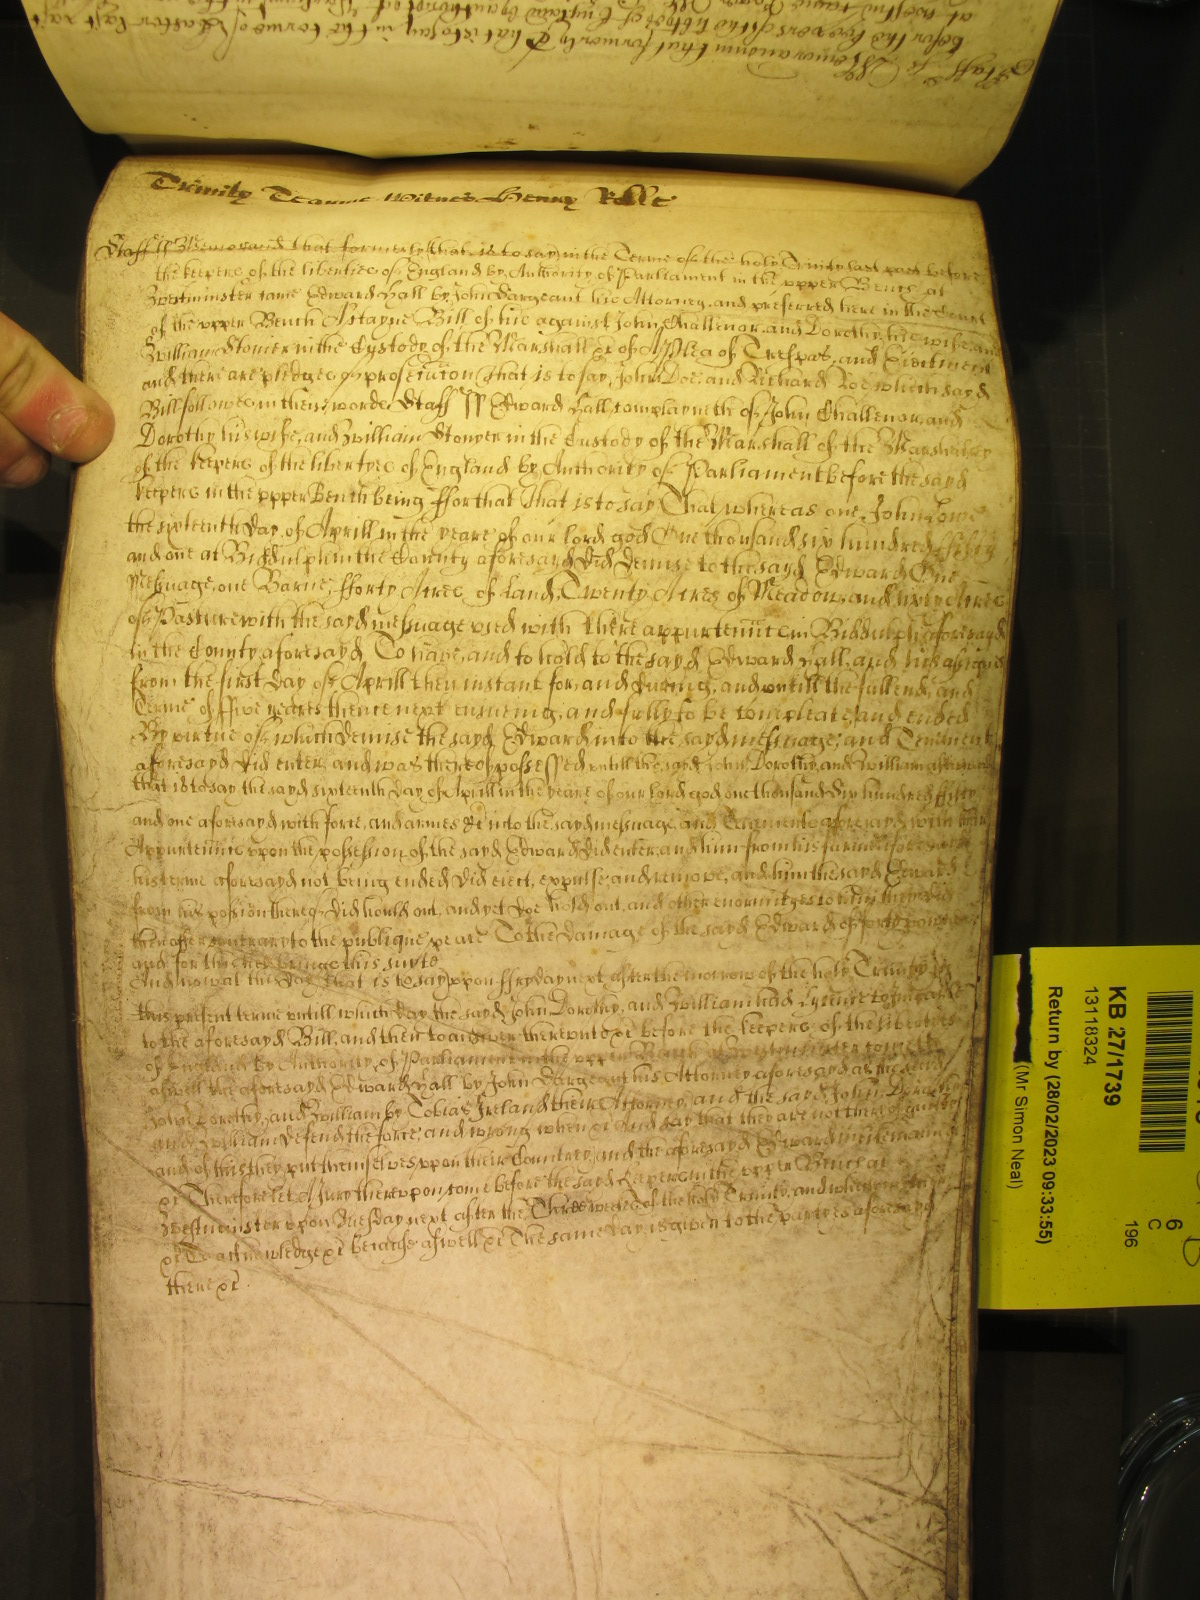 Trinity Tearme Witnes Henry Rolle
Staff ss Memorand that formerly that is to say in the Terme of the holy Trinity last past before
the keepers of the liberties of England by Authority of Parliament in the upper Bench at
Westminster came Edward Hall by John Sargeant his Attorney, and preferred here in the Court
of the upper Bench A Certayne Bill of his against John Challenor and Dorothy his wife, and
William Stonier in the Custody of the Marshall &c of A Plea of Trespas, and Eiectment
and there are pledges of prosecution that is to say, John Doe, and Richard Roe which sayd
Bill followes in theis wordes Staff ss Edward Hall complayneth of John Challenor, and
Dorothy his wife, and William Stonyer in the Custody of the Marshall of the Marshalsey
of the keepers of the libertyes of England by Authority of Parliament before the sayd
keepers in the upper Bench being ffor that that is to say That whereas one John Lowe
the sixteenth day of Aprill in the yeare of our lord god One thousand six hundred ffifty
and one at Biddulph in the County aforesayd did demise to the sayd Edward One
Messuage, one Barne, fforty Acres of Land, Twenty Acres of Meadow, and sixty Acres
of Pasture with the sayd messuage used with there appurtennc in Biddulph aforesayd
in the County aforesayd To have, and to hold to the sayd Edward Hall, and his assignes
from the first day of Aprill then instant for, and during, and untill the full end, and
Terme of ffive yeares thence next ensueing, and fully to be compleate, and ended
By virtue of which demise the sayd Edward into the sayd messuage, and Tenement
aforesayd did enter, and was thereof possessed untill the sayd John Dorothy, and William afterwards
that is to say the sayd sixteenth day of Aprill in the yeare of our lord god one thousand Six hundred ffifty
and one aforesayd with force, and armes &c into the sayd messuage, and Tenements aforesayd with their
Appurtennc upon the possession of the sayd Edward did enter, and him from his farme aforesayd
his terme aforesayd not being ended did eiect, expulse, and remove, and him the sayd Edward
from his possion thereof did hould out, and yet doe hold out, and other enormityes to him they did
then &c contrary to the publique peace To the damage of the sayd Edward of forty pounds
and for this hee brings this suyte
And now at this day that is to say upon ffryday next after the morrow of the holy Trinity
this present terme untill which day the sayd John Dorothy, and William had lycence to imparle
to the aforesayd Bill, and then to answer thereunto &c before the keepers of the liberties
of England by Authority of Parliament in the upper Bench at Westminster cometh
aswell the aforesayd Edward Hall by John Sargeant his Attorney aforesayd as the sayd
John Dorothy, and William by Tobias Ireland their Attorney, and the sayd John Dorothy
and William defend the force, and wrong when &c And say that they are not thereof guilty
and of this they put themselves upon their Countrey, and the aforesayd Edward in like manner
&c Therefore let A Jury thereupon come before the sayd keepers in the upper Bench at
Westminster upon Tuesday next after the Three weekes of the holy Trinity, and who
&c To acknowledge &c Because aswell &c The same day is given to the partyes aforesayd
there &c
KB 27/1739
13118324
Return by (28/02/2023 09:33:55)
(Mr Simon Neal)
6
C
196